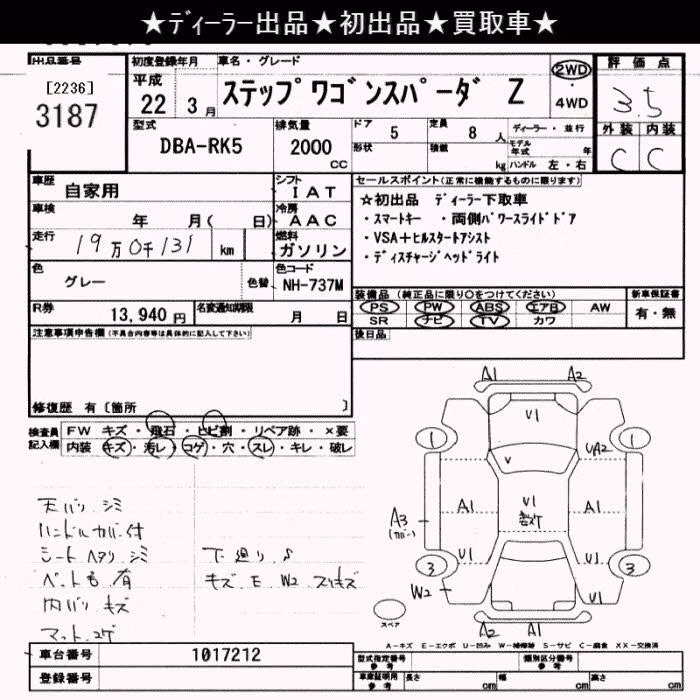 ★ディーラー出品★初出品★買取車★
出品番号
[2236]
3187
初度登録年月
平成
22 3月
車名・グレード
ステップワゴンスパーダ Z
2WD
・
4WD
評価点
3.5
外装 内装
C C
型式
DBA-RK5
排気量
2000
CC
ドア 5
定員 8 人
形状
積載 kg
ディーラー・並行
モデル年式 年
ハンドル 左・右
車歴
自家用
シフト
IAT
車検
年 月( 日)
冷房
AAC
走行
19万0千131 km
燃料
ガソリン
色
グレー
色替
色コード
NH-737M
セールスポイント(正常に機能するものに限ります)
★初出品 ディーラー下取車
・スマートキー ・両側パワースライドドア
・VSA+ヒルスタートアシスト
・ディスチャージヘッドライト
R券
13,940 円
名変通知期限
月 日
装備品 (純正品に限り○をつけてください)
PS PW ABS エアB AW
SR ナビ TV カワ
新車保証書
有・無
注意事項申告欄(不具合内容等は具体的に記入して下さい)
後日品
修復歴 有 [箇所 ]
検査員
記入欄
FW キズ・飛石・ヒビ割・リペア跡・×要
内装 キズ・汚レ・コゲ・穴・スレ・キレ・破レ
天バリ シミ
ハンドルカバー付
シートヘタリ シミ
ペット毛 有
内バリ キズ
マット コゲ
下廻り
キズ E W2 スリキズ
A1 A2
V1
1 1
V UA2
A1 V1 A1
A3
(カバー)
V1 V1
3 3
W2 V1
A2 A1
スペア
A-キズ E-エクボ U-凹み W-補修跡 S-サビ C-腐食 XX-交換済
車台番号
1017212
登録番号
型式指定番号
参考
類別区分番号
参考
車庫証明用
参考
長さ cm
幅 cm
高さ cm